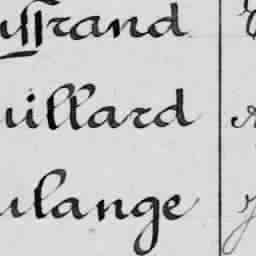 uffrand
uillard
ulange